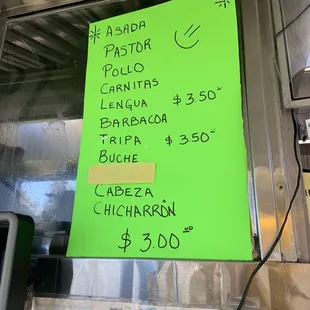 * ASADA *
PASTOR
POLLO
CARNITAS
LENGUA $3.50
BARBACOA
TRIPA $3.50
BUCHE
CABEZA
CHICHARRÓN
$3.00